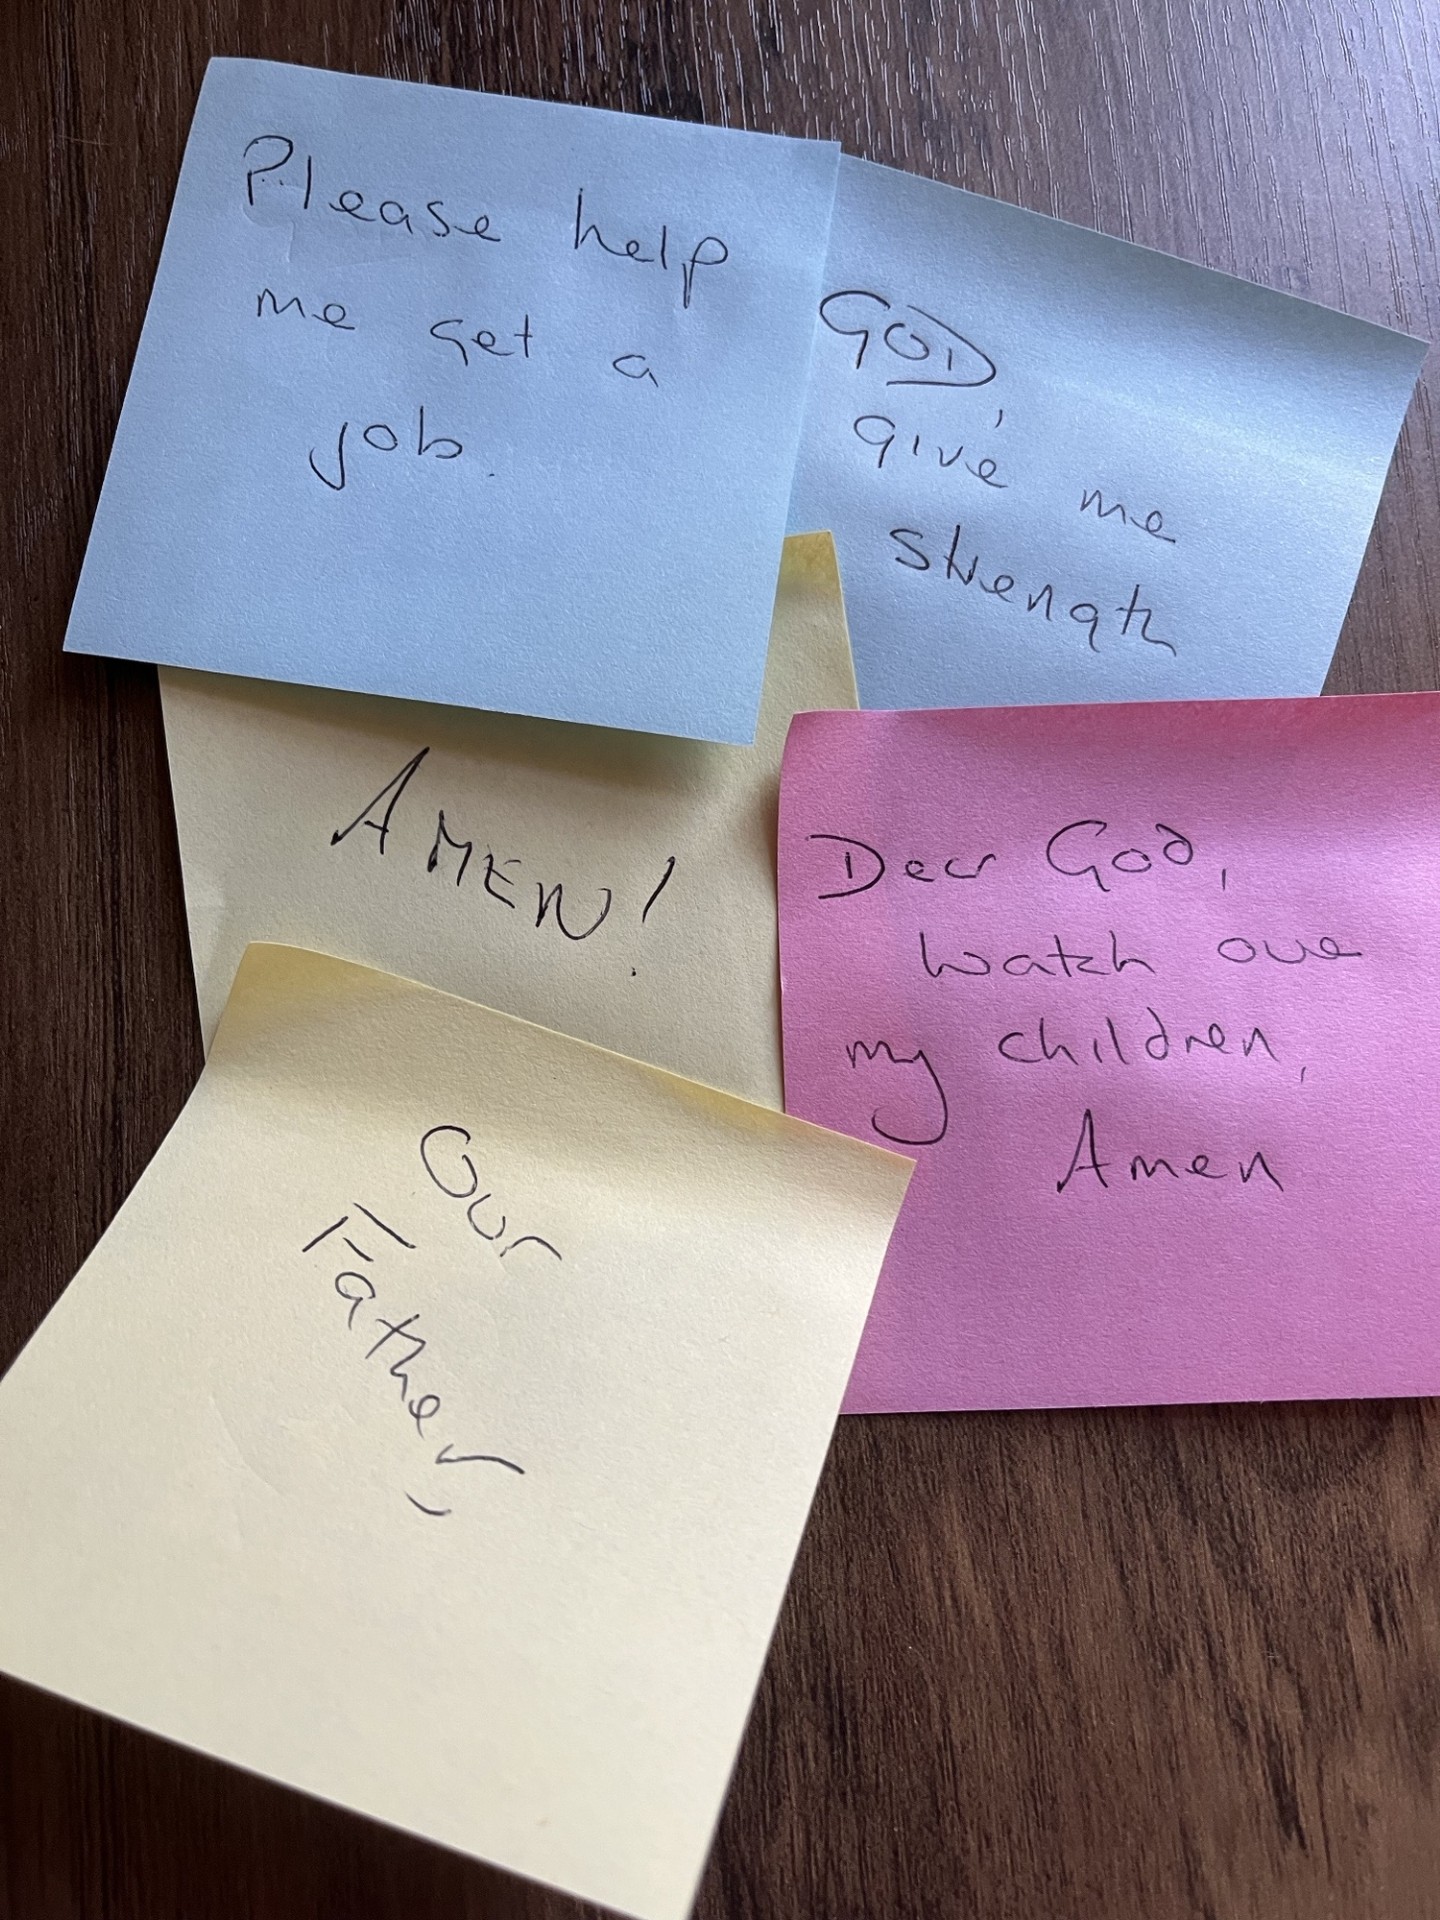 Please help
me get a
job.
GOD,
give me
strength
AMEN!
Dear God,
watch over
my children,
Amen
Our
Father,